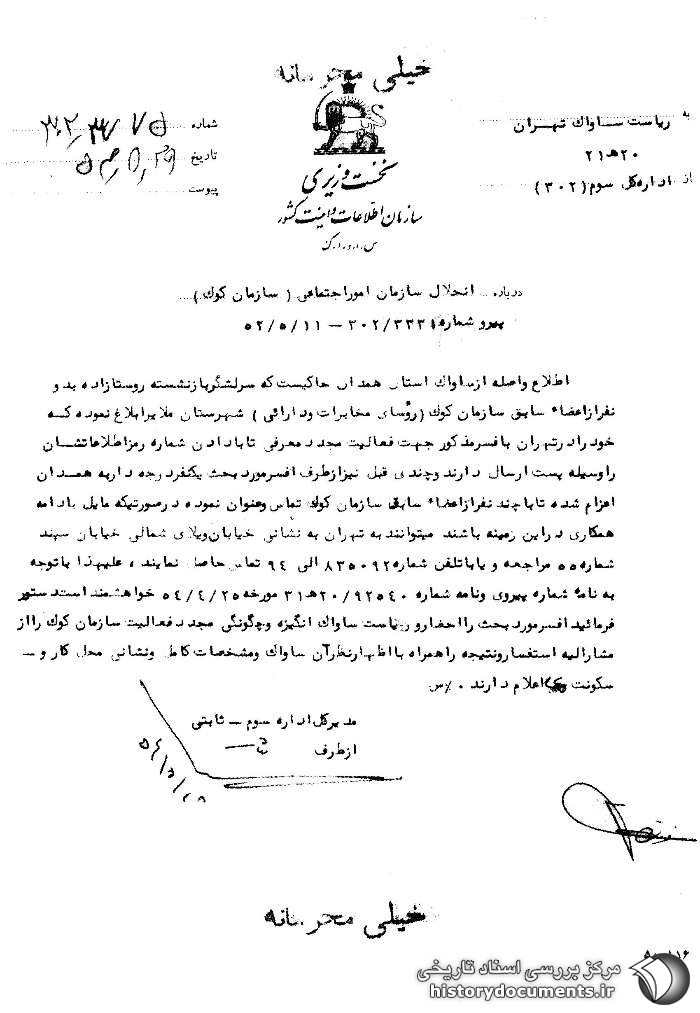 خیلی محرمانه
به ریاست ساواک تهران
۲۰هـ۲۱
از اداره کل سوم (۳۰۲)
نخست وزیری
سازمان اطلاعات و امنیت کشور
س.ا.و.ا.ک
شماره
تاریخ
پیوست
درباره انحلال سازمان امور اجتماعی ( سازمان کوک )
پیرو شماره ۳۰۲/۳۳۳۱ – ۵۲/۵/۱۱
اطلاع واصله از ساواک استان همدان حاکیست که سرلشگر بازنشسته روستازاده بدو
نفر از اعضاء سابق سازمان کوک (رؤسای مخابرات و دارائی ) شهرستان ملایر ابلاغ نموده که
خود را در تهران با فسر مذکور جهت فعالیت مجدد معرفی تا با دادن شماره رمز اطلاعاتشان
را وسیله پست ارسال دارند و چندی قبل نیز از طرف افسر مورد بحث یکنفر درجه دار به همدان
اعزام شده تا با چند نفر از اعضاء سابق سازمان کوک تماس و عنوان نموده در صورتیکه مایل بادامه
همکاری در این زمینه باشند میتوانند به تهران به نشانی خیابان ویلای شمالی خیابان سپند
شماره ۵۵ مراجعه و یا با تلفن شماره ۸۳۵۰۹۲ الی ۹۴ تماس حاصل نمایند ، علیهذا با توجه
به نامه شماره پیروی و نامه شماره ۲۰/۹۲۵۴۰هـ۳۱ مورخه ۵۴/۴/۲۵ خواهشمند است دستور
فرمائید افسر مورد بحث را احضار و ریاست ساواک انگیزه و چگونگی مجدد فعالیت سازمان کوک را از
مشارالیه استفسار و نتیجه را همراه با اظهار نظر آن ساواک و مشخصات کامل و نشانی محل کار و –
سکونت اعلام دارند . /س
مدیر کل اداره سوم – ثابتی
از طرف
خیلی محرمانه
مرکز بررسی اسناد تاریخی
historydocuments.ir